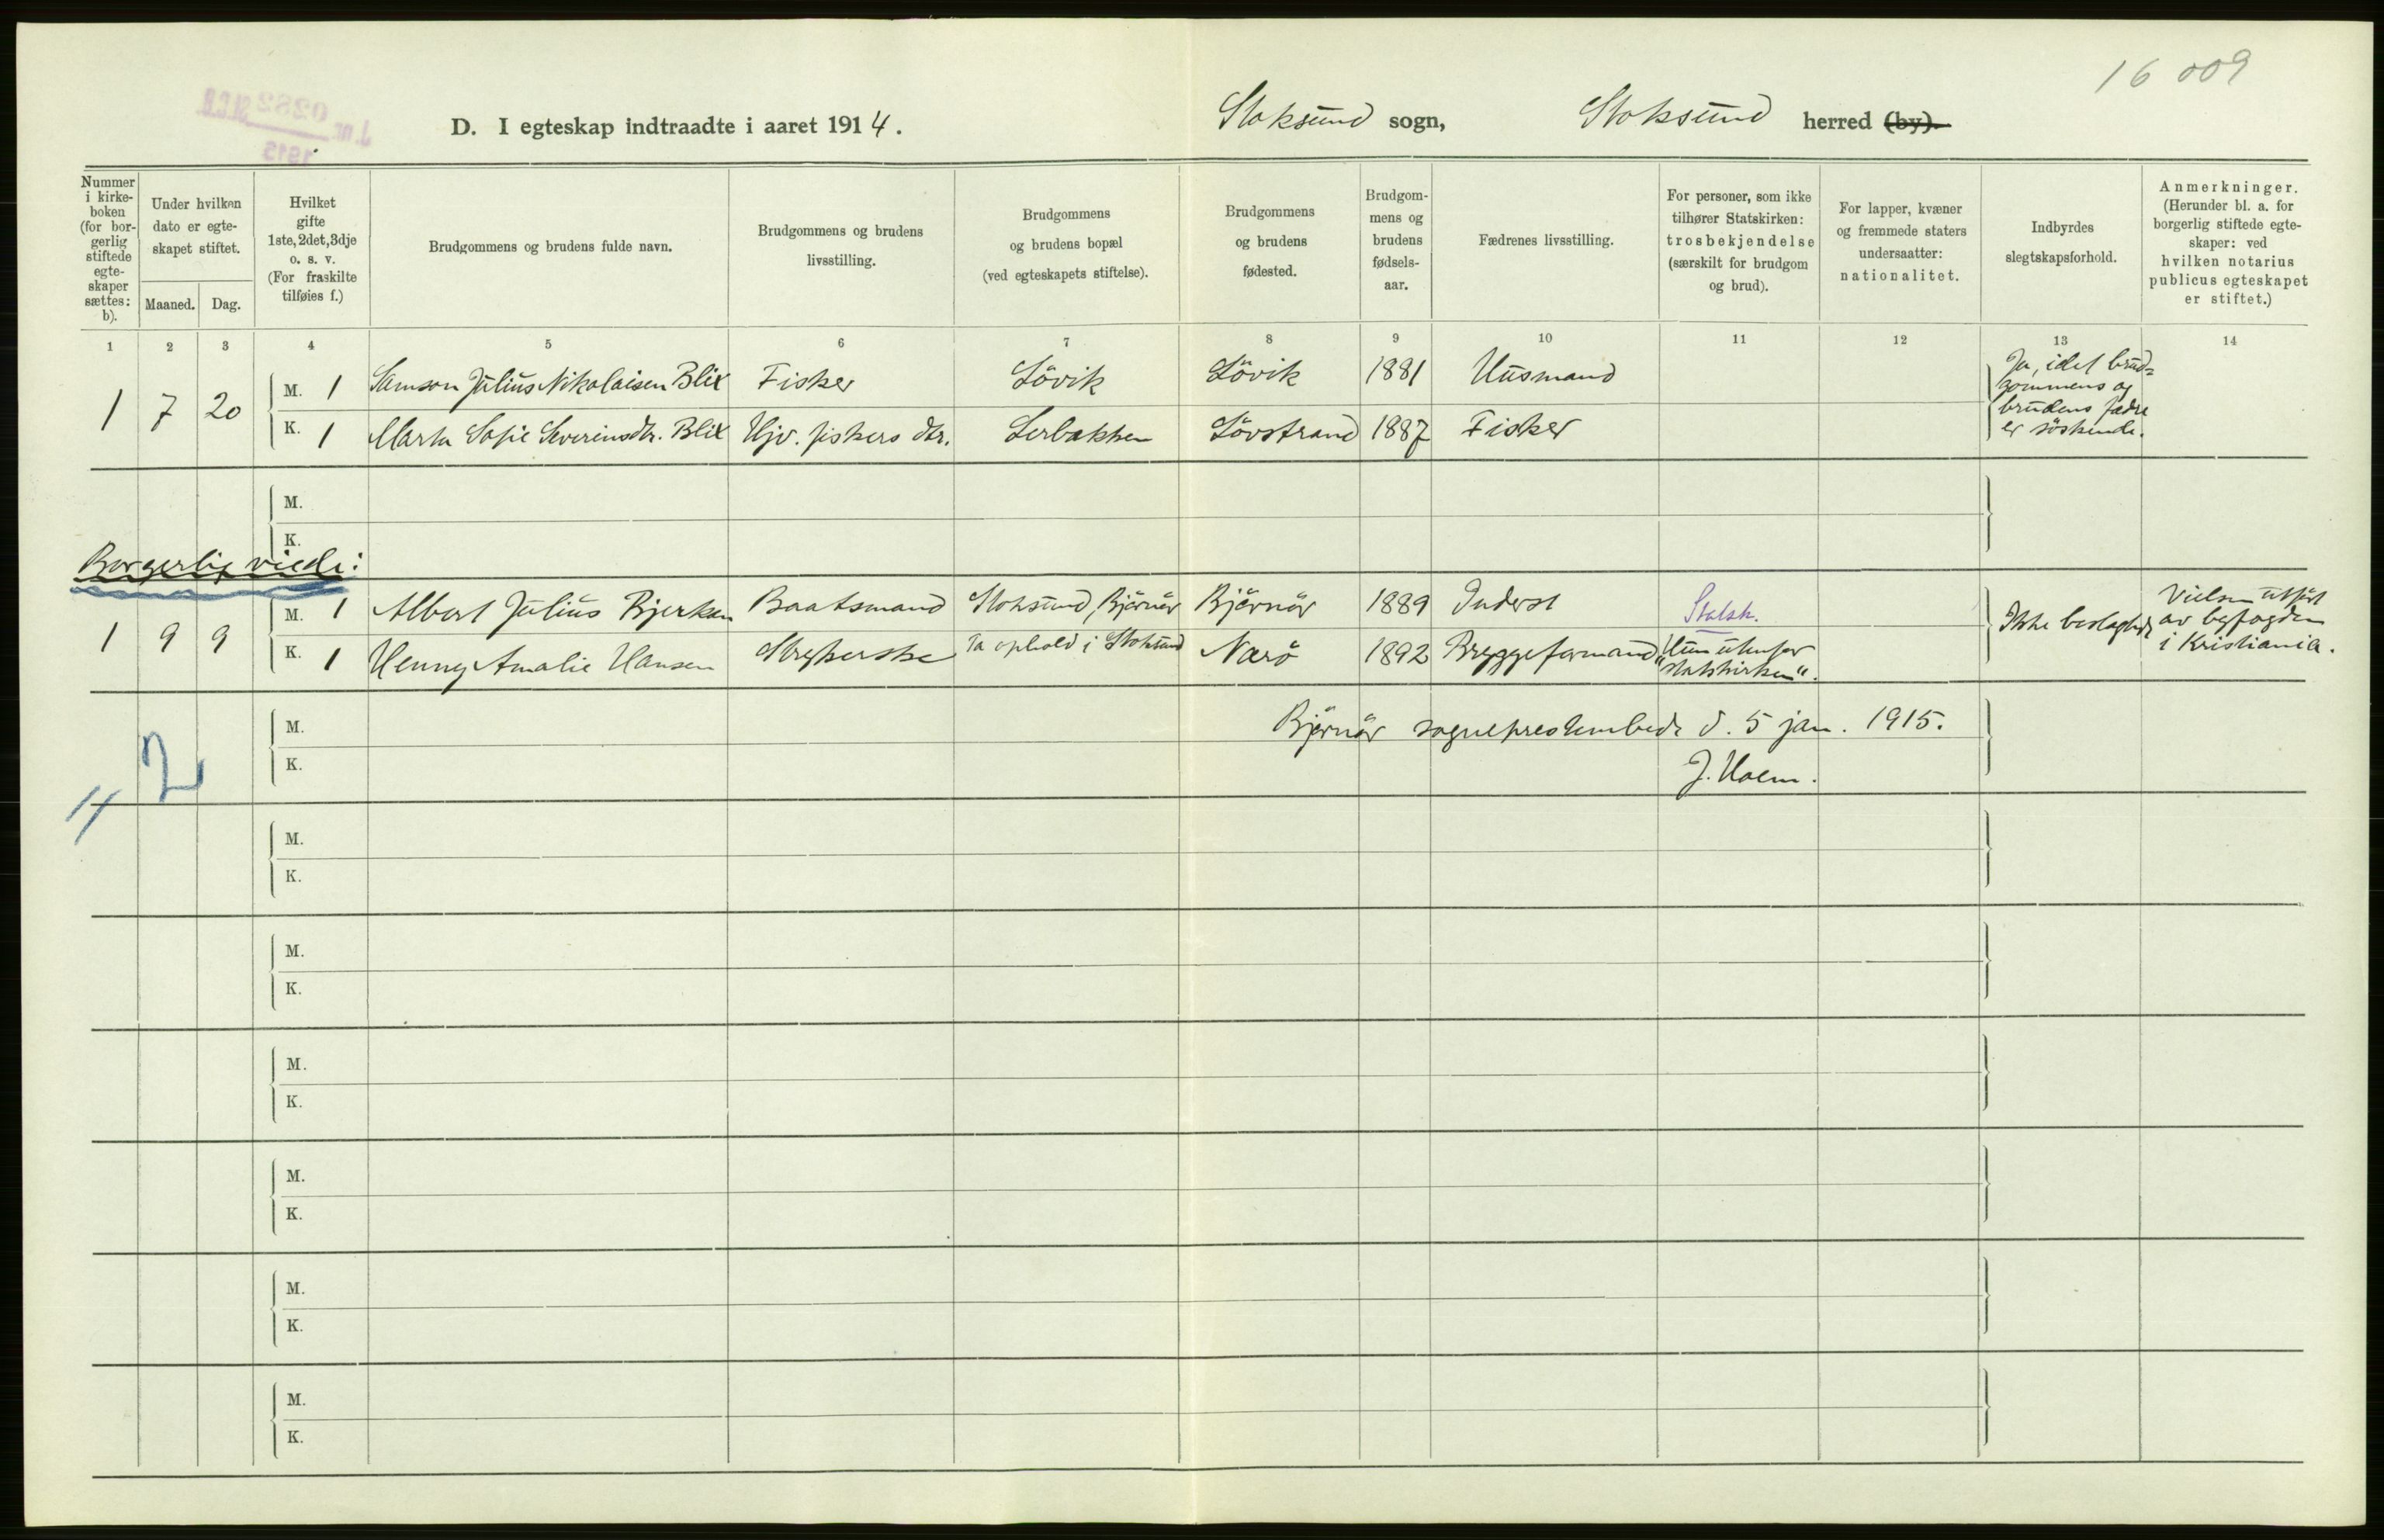 16 009
J. nr. 0282 M.C.B.
1915
D. I egteskap indtraadte i aaret 1914.
Stoksund sogn, Stoksund herred (by).
Nummer i kirke-boken (for bor-gerlig stiftede egte-skaper sættes: b).
Under hvilken dato er egte-skapet stiftet.
Maaned. Dag.
Hvilket gifte 1ste, 2det, 3dje o. s. v. (For fraskilte tilføies f.)
Brudgommens og brudens fulde navn.
Brudgommens og brudens livsstilling.
Brudgommens og brudens bopæl (ved egteskapets stiftelse).
Brudgommens og brudens fødested.
Brudgom-mens og brudens fødsels-aar.
Fædrenes livsstilling.
For personer, som ikke tilhører Statskirken: trosbekjendelse (særskilt for brudgom og brud).
For lapper, kvæner og fremmede staters undersaatter: nationalitet.
Indbyrdes slegtskapsforhold.
Anmerkninger. (Herunder bl. a. for borgerlig stiftede egte-skaper: ved hvilken notarius publicus egteskapet er stiftet.)
1 2 3 4 5 6 7 8 9 10 11 12 13 14
1 7 20
M. 1 Samson Julius Nikolaisen Blix Fisker Lövik Lövik 1881 Husmand
K. 1 Marta Sofie Severinsdtr. Blix Hjv. fiskers dtr. Lerbakken Lövstrand 1887 Fisker
Ja, idet brud=
gommens og
brudens fædre
er söskende.
M.
K.
Borgerlig viede:
1 9 9
M. 1 Albert Julius Bjerkan Baatsmand Stoksund, Björnör Björnör 1889 Inderst Statsk.
K. 1 Henny Amalie Hansen Strykerske Ta ophold i Stoksund Nærö 1892 Bryggeformand Hun utenfor
"statskirken".
Ikke beslegtede
Vielsen utfört
av byfogden
i Kristiania.
M.
K.
Björnör sogneprestembede d. 5 jan. 1915.
J. Holm.
2
M.
K.
M.
K.
M.
K.
M.
K.
M.
K.
M.
K.